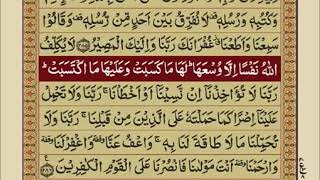 وَكُتُبِهٖ وَرُسُلِهٖ ۟ لَا نُفَرِّقُ بَيْنَ اَحَدٍ مِّنْ رُّسُلِهٖ ۟ وَقَالُوْا
سَمِعْنَا وَاَطَعْنَا غُفْرَانَكَ رَبَّنَا وَاِلَيْكَ الْمَصِيْرُ ﴿٢٨٥﴾ لَا يُكَلِّفُ
اللّٰهُ نَفْسًا اِلَّا وُسْعَهَا ؕ لَهَا مَا كَسَبَتْ وَعَلَيْهَا مَا اكْتَسَبَتْ ؕ
رَبَّنَا لَا تُؤَاخِذْنَاۤ اِنْ نَّسِيْنَاۤ اَوْ اَخْطَاْنَا ۚ رَبَّنَا وَلَا تَحْمِلْ
عَلَيْنَاۤ اِصْرًا كَمَا حَمَلْتَهٗ عَلَى الَّذِيْنَ مِنْ قَبْلِنَا ۚ رَبَّنَا وَلَا
تُحَمِّلْنَا مَا لَا طَاقَةَ لَنَا بِهٖ ۚ وَاعْفُ عَنَّا ۥ وَاغْفِرْ لَنَا ۥ
وَارْحَمْنَا ۥ اَنْتَ مَوْلٰىنَا فَانْصُرْنَا عَلَى الْقَوْمِ الْكٰفِرِيْنَ ﴿٢٨٦﴾